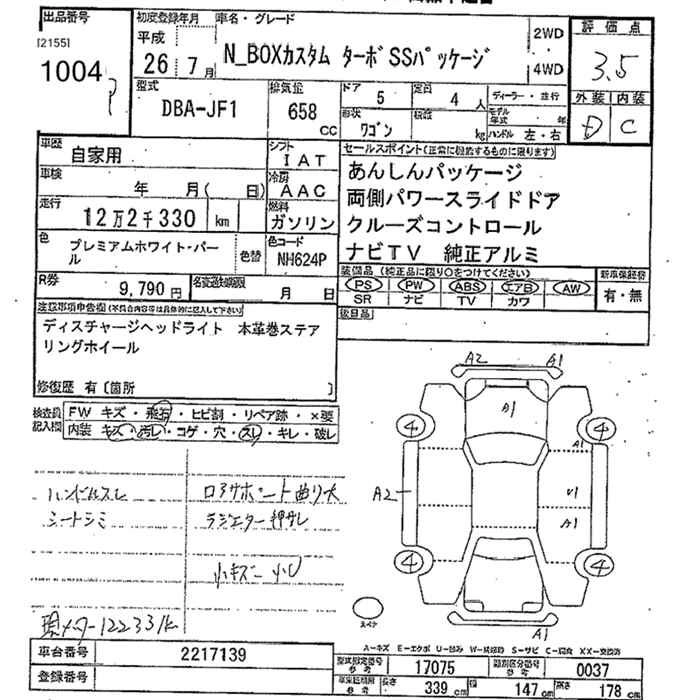 出品番号 初度登録年月 車名・グレード 2WD 評価点
[2155]
1004
平成
26年7月
N_BOXカスタム ターボSSパッケージ
4WD
3.5
型式 排気量 ドア 定員 ディーラー・並行 外装 内装
DBA-JF1 658 CC 5 4 人
形状 積載 モデル年式 年
ワゴン kg ハンドル 左・右
D C
車歴 自家用 シフト IAT
セールスポイント(正常に機能するものに限ります)
車検 年 月(日) 冷房 AAC
あんしんパッケージ
両側パワースライドドア
走行 12万2千330 km 燃料 ガソリン
クルーズコントロール
色 プレミアムホワイト・パール 色替 色コード NH624P
ナビTV 純正アルミ
R券 9,790円 名変期限 月 日
装備品(純正品に限り○をつけてください) 新車保証書
PS PW ABS エアB AW 有・無
SR ナビ TV カワ
後日品
注意事項申告欄(不具合内容等は具体的に記入して下さい)
ディスチャージヘッドライト 本革巻ステア
リングホイール
修復歴 有〔箇所 〕
検査員 FW キズ・飛石・ヒビ割・リペア跡・×要
記入欄 内装 キズ・汚レ・コゲ・穴・スレ・キレ・破レ
A2 A1
A1
4 4
A1
A2 U1
A1
4 4
A1
スペア
ハンドルスレ
シートシミ
コアサポート曲り大
ラジエター押サレ
小キズ 小U
現メーター122331k
車台番号 2217139
登録番号
A−キズ E−エクボ U−凹み W−補修跡 S−サビ C−腐食 XX−交換済
型式指定番号 参考 17075 類別区分番号 参考 0037
車体寸法 参考 長さ 339 cm 幅 147 cm 高さ 178 cm